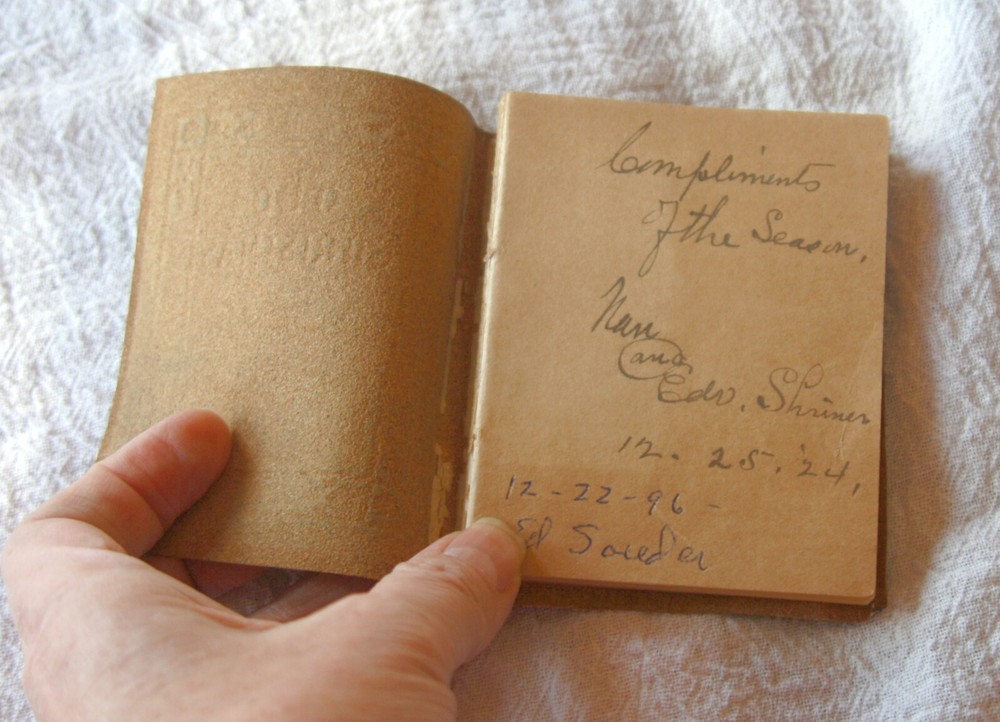 Compliments
of the Season,
Nan
and
Edw. Shriner
12. 25. '24,
12-22-96-
Ed Souder